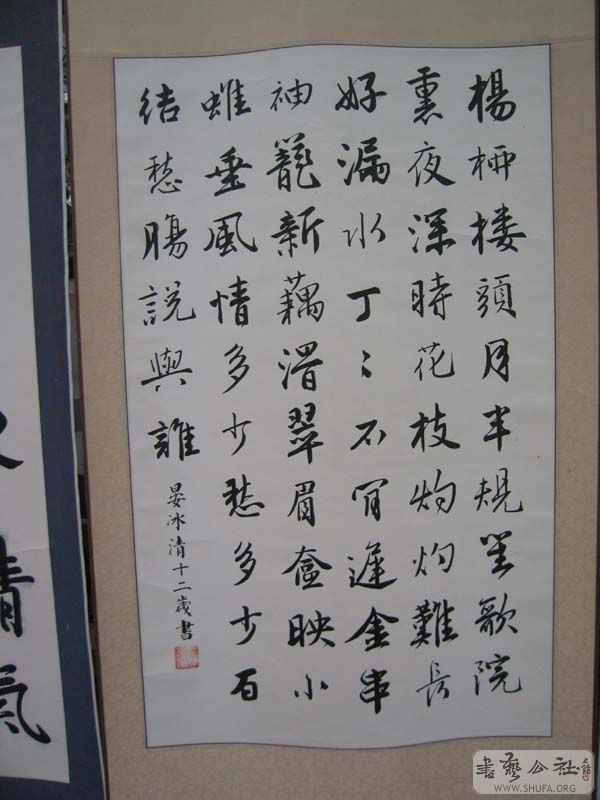 楊栁樓頭月半規笙歌院
熏夜深時花枝灼灼難長
好漏水丁〻不肯遲金串
袖籠新藕滑翠眉奩映小
蜼垂風情多少愁多少百
結愁腸説與誰
晏冰清十二歲書
清氣
書藝公社
WWW.SHUFA.ORG